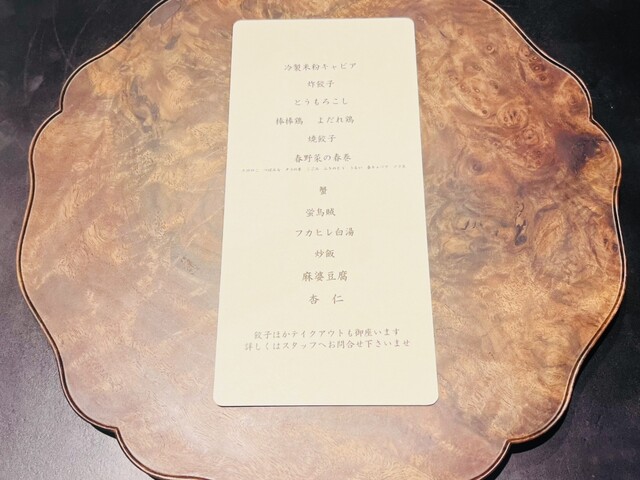 冷製米粉キャビア
炸餃子
とうもろこし
棒棒鶏 よだれ鶏
焼餃子
春野菜の春巻
蟹
蛍烏賊
フカヒレ白湯
炒飯
麻婆豆腐
杏 仁
餃子ほかテイクアウトも御座います
詳しくはスタッフへお問合せ下さいませ